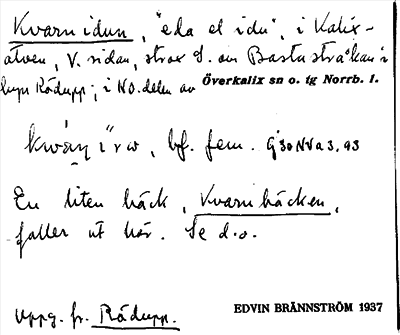 Kvarnidun, "eda el idu", i Kalix-
älven, V. sidan, strax S. om Bastusträkan i
byn Rödupp; i NO. delen av Överkalix sn o. tg Norrb. l.
bf. fem.
En liten bäck, Kvarnbäcken,
faller ut här. Se d.o.
Uppg. fr. Rödupp. EDVIN BRÄNNSTRÖM 1937